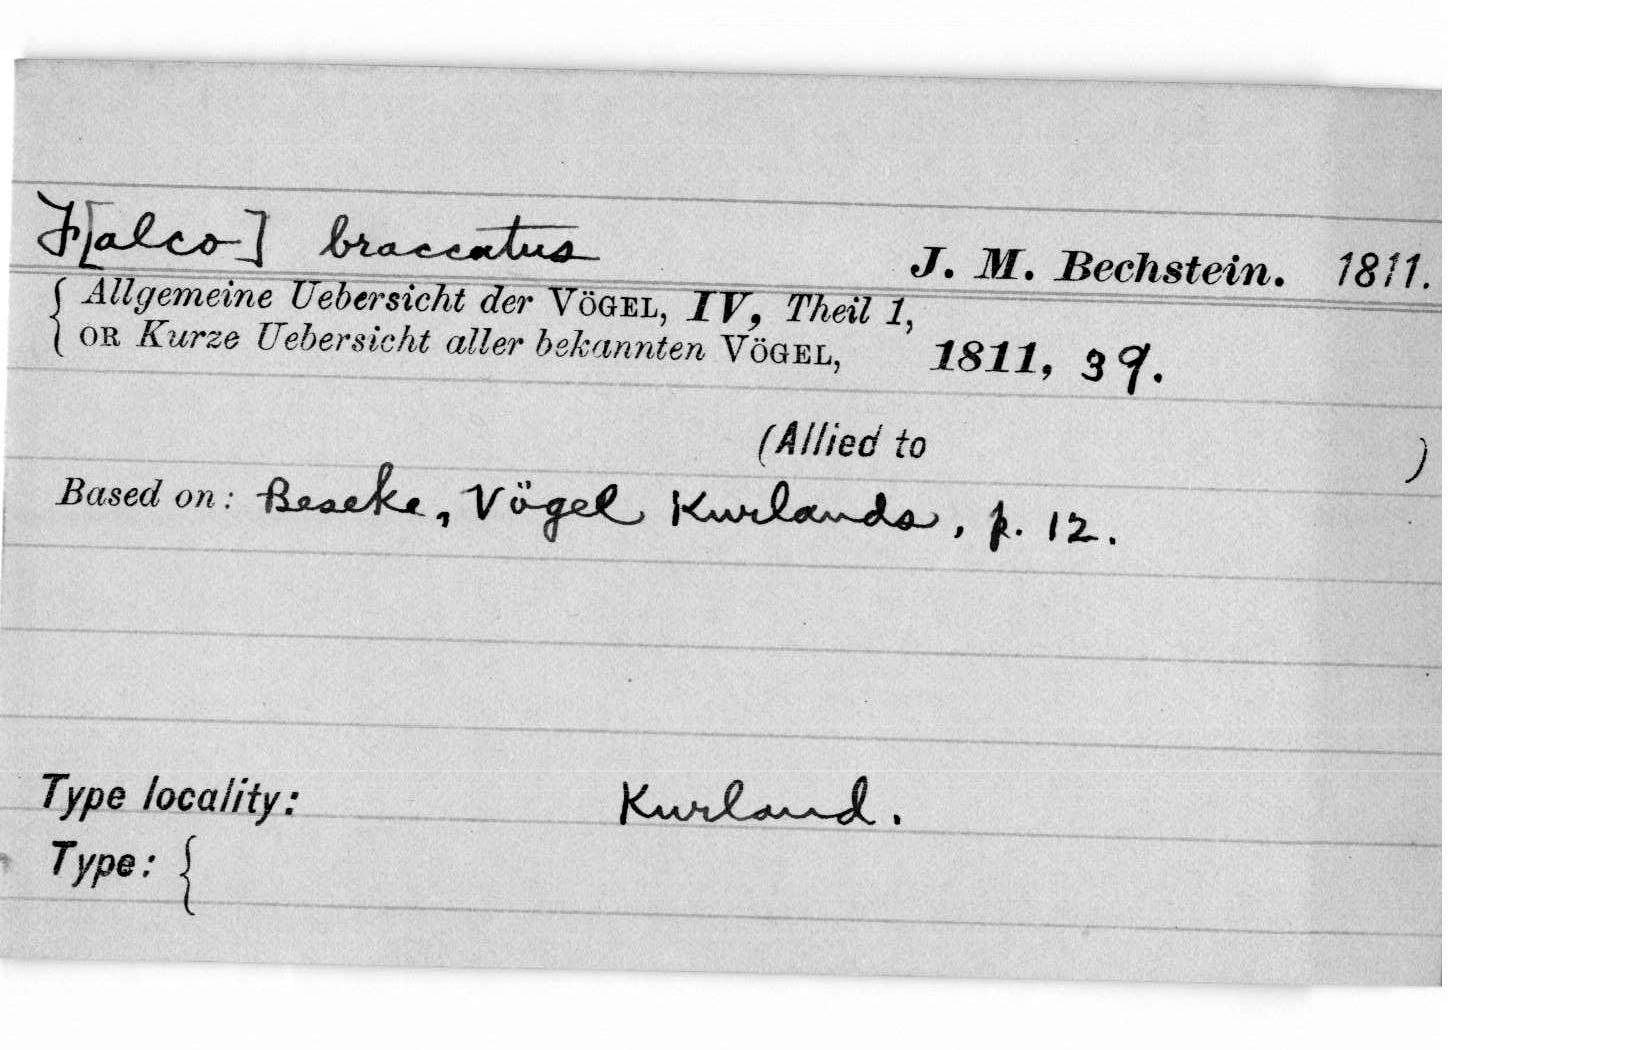 F[alco] braccatus J. M. Bechstein. 1811.
{ Allgemeine Uebersicht der VÖGEL, IV, Theil 1,
OR Kurze Uebersicht aller bekannten VÖGEL, 1811, 39.
(Allied to )
Based on: Beseke, Vögel Kurlands, p. 12.
Type locality: Kurland.
Type: {